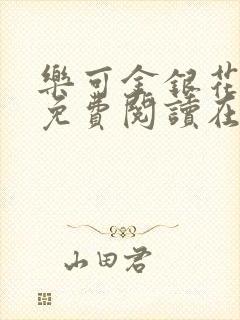 樂可金銀花
免費閱讀在
山田君